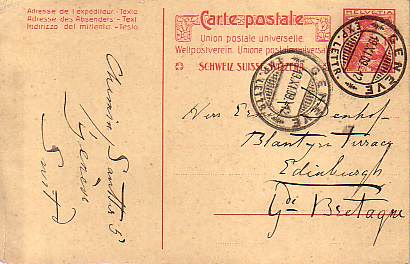 Adresse de l'expéditeur.-Texte
Adresse des Absenders.- Text
Indirizzo del mittente.-Testo
Carte postale
Union postale universelle.
Weltpostverein. Unione postale universale
SCHWEIZ SUISSE SVIZZERA
HELVETIA
GENÈVE
EXP. LETTR.
GENÈVE
EXP. LETTR.
Blantyre Terrace
Edinburgh
Gde Bretagne
Chemin